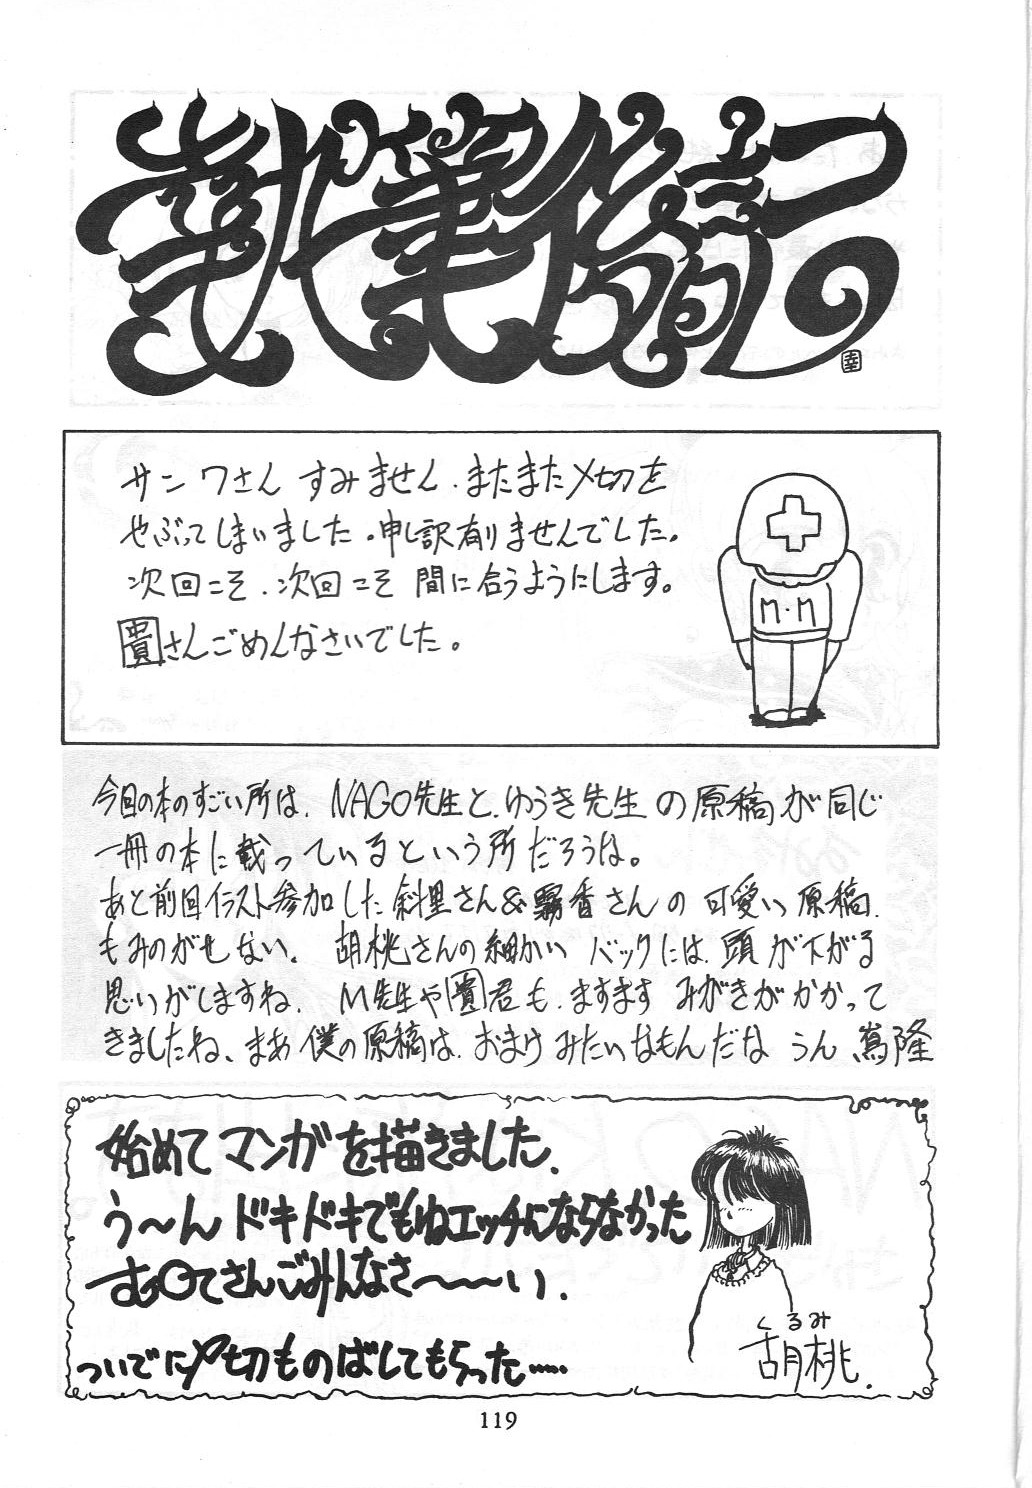 執筆後記
幸
サンワさん すみません.またまた〆切を
やぶってしまいました。申し訳有りませんでした。
次回こそ.次回こそ 間に合うようにします。
貴さんごめんなさいでした。
M・M
今回の本のすごい所は、NAGO先生と、ゆうき先生の原稿が同じ
一冊の本に載っているという所だろうな。
あと前回イラスト参加した斜里さん&霧香さんの可愛い原稿、
ものがせない。胡桃さんの細かいバックには、頭が下がる
思いがしますね、M先生や貴君も、ますます みがきがかかって
きましたね、まあ僕の原稿は、おまけみたいなもんだな うん 嵩隆
始めてマンガを描きました、
う〜ん ドキドキでもねエッチにならなかった
さんごみんなさ〜〜〜い.
ついでに〆切ものばしてもらった……
くるみ
胡桃.
119